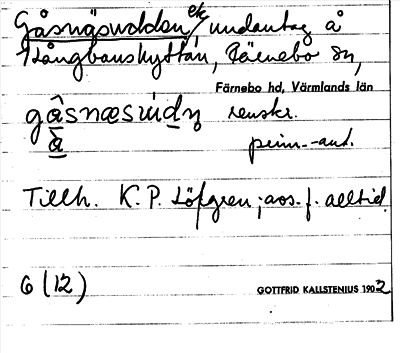 Gåsnäsudden, ek, undantag å
Långbanshyttan, Färnebo sn,
Färnebo hd, Värmlands län
gåsnæsúdn renskr.
à prim.-ant.
Tillh. K. P. Löfgren; aos. f. alltid
6 (12) GOTTFRID KALLSTENIUS 1902